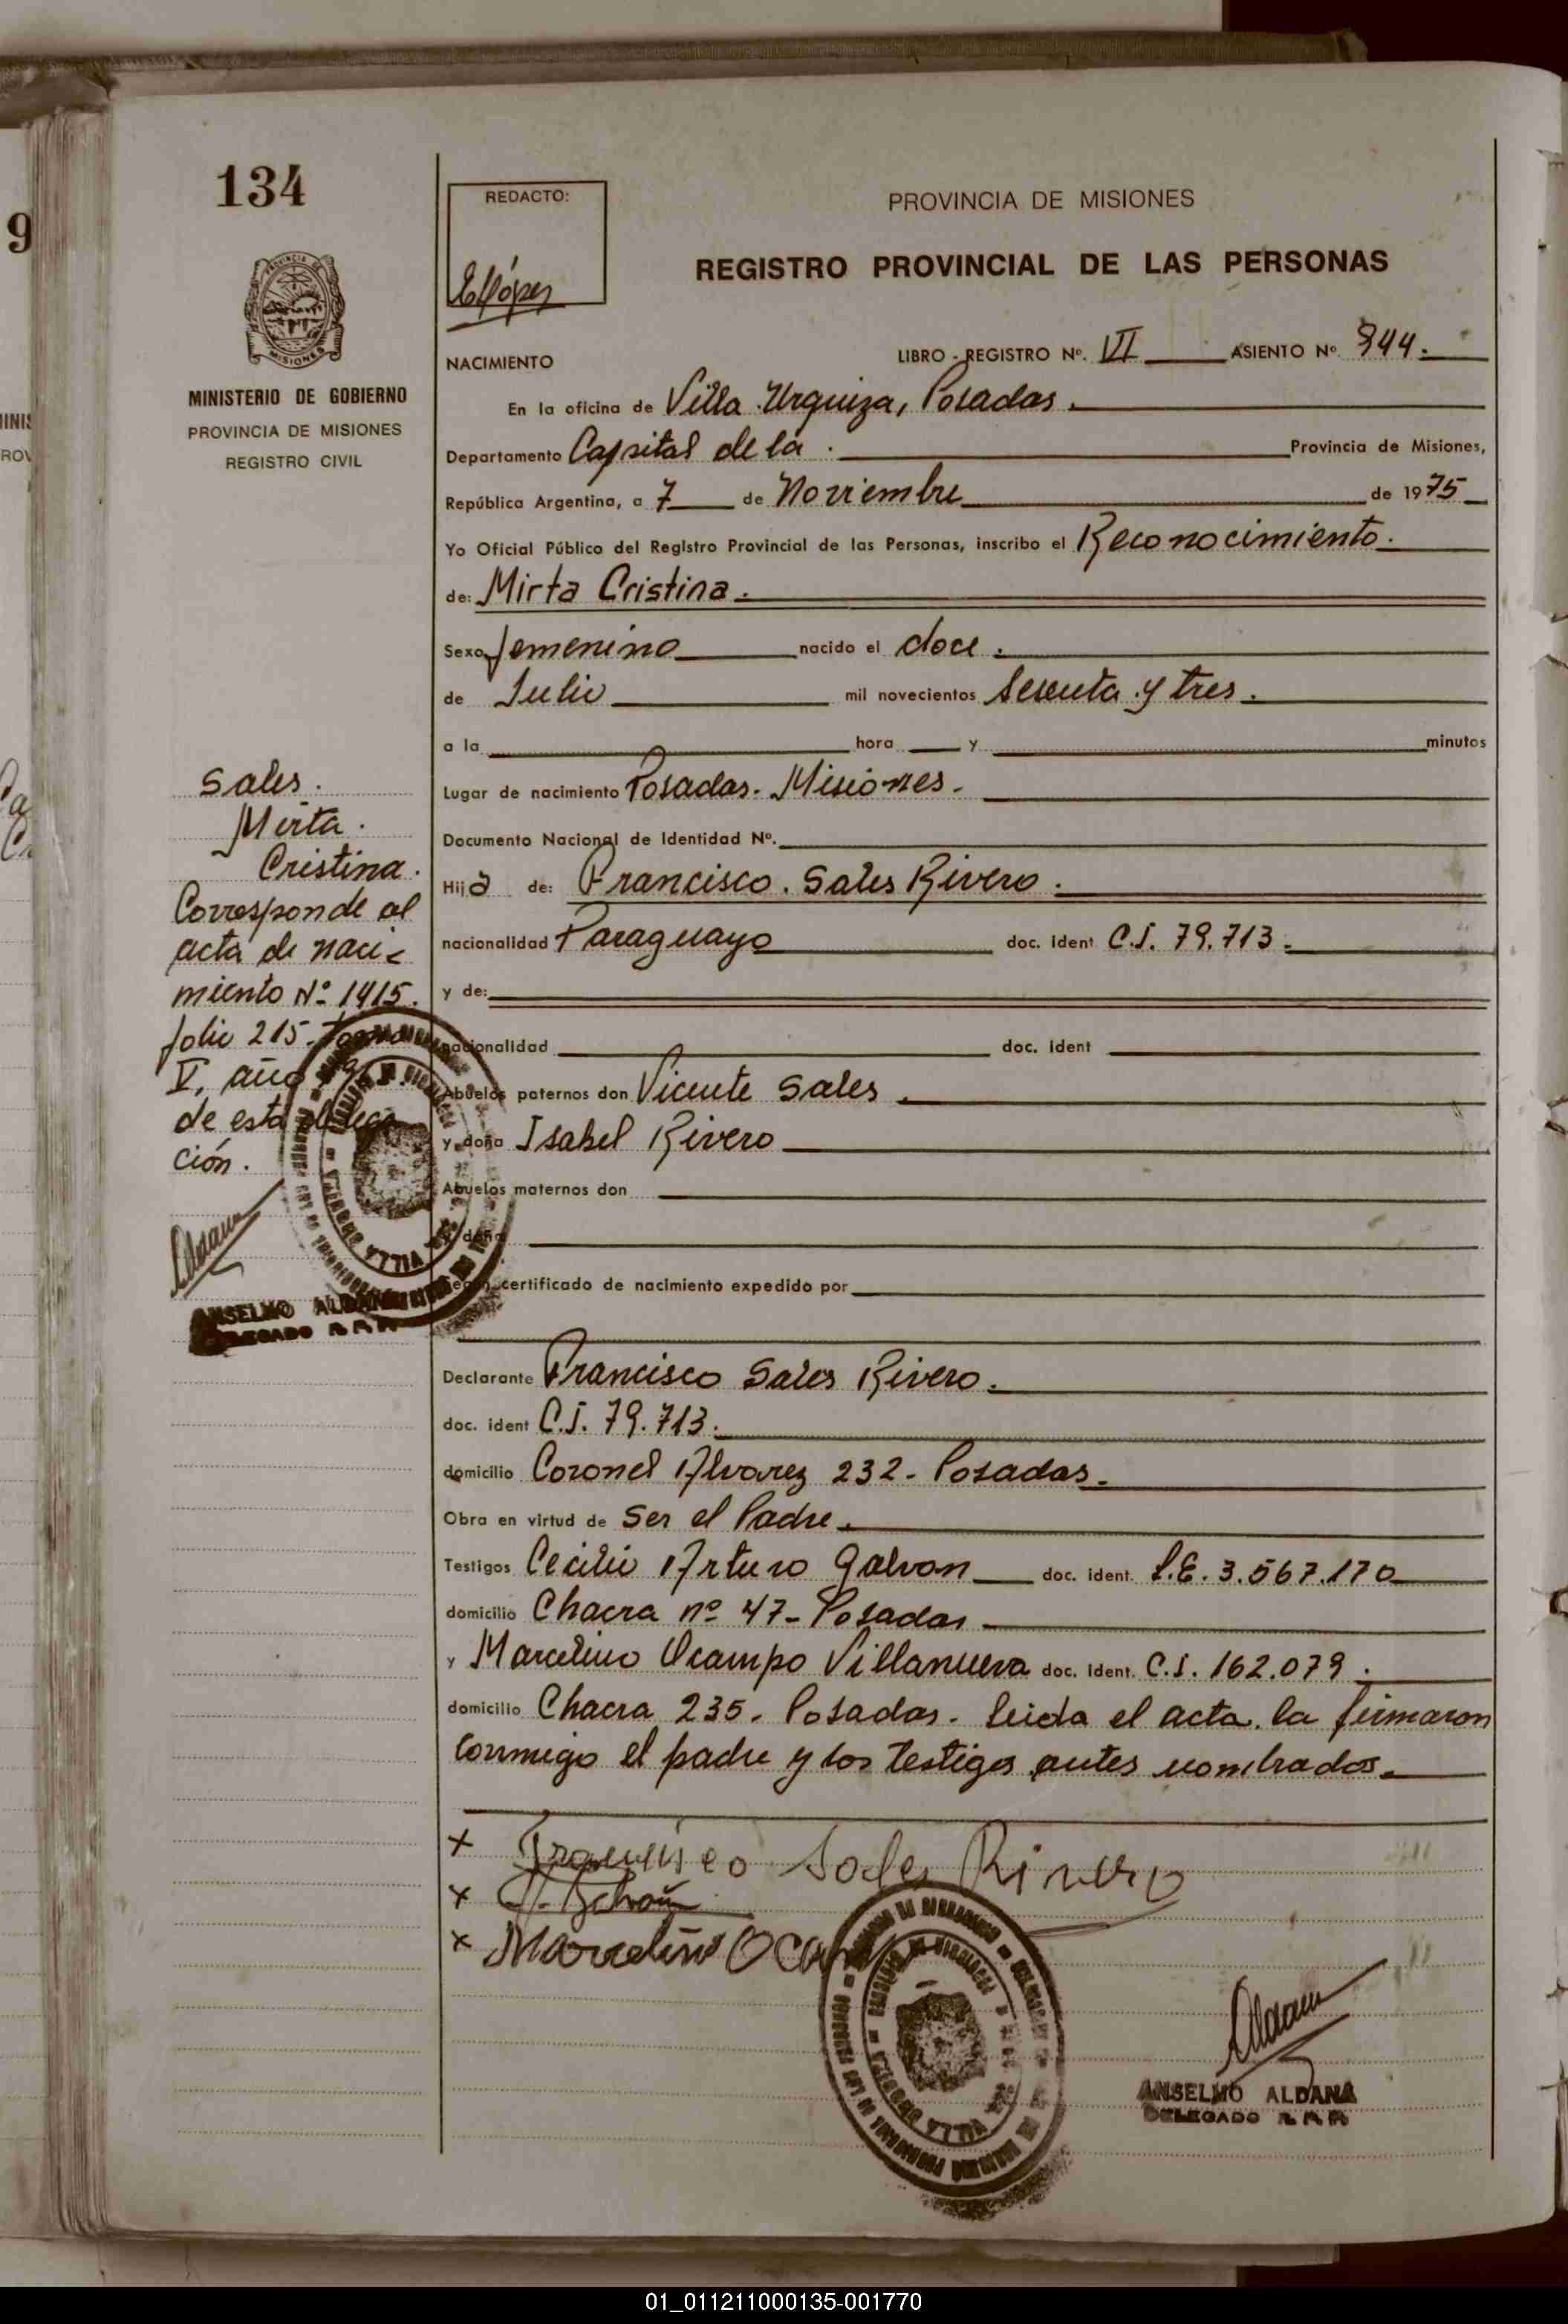 134
REDACTO:
ELópez
PROVINCIA DE MISIONES
REGISTRO PROVINCIAL DE LAS PERSONAS
MINISTERIO DE GOBIERNO
PROVINCIA DE MISIONES
REGISTRO CIVIL
NACIMIENTO
LIBRO - REGISTRO Nº. VI ASIENTO Nº 944.
En la oficina de Villa Urquiza, Posadas.
Departamento Capital de la. Provincia de Misiones,
República Argentina, a 7 de Noviembre de 1975
Yo Oficial Público del Registro Provincial de las Personas, inscribo el Reconocimiento.
de: Mirta Cristina.
Sexo femenino nacido el doce.
de Julio mil novecientos sesenta y tres.
a la hora y minutos
Lugar de nacimiento Posadas. Misiones.
Documento Nacional de Identidad Nº.
Hija de: Francisco. Sales Rivero.
nacionalidad Paraguayo doc. ident C.I. 79.713.
y de:
nacionalidad doc. ident
Abuelos paternos don Vicente Sales.
y doña Isabel Rivero
Abuelos maternos don
y doña
Según certificado de nacimiento expedido por
Declarante Francisco Sales Rivero.
doc. ident C.I. 79.713.
domicilio Coronel Alvarez 232. Posadas.
Obra en virtud de ser el Padre.
Testigos Cecilio Arturo Galvan doc. ident. L.E. 3.567.170
domicilio Chacra nº 47- Posadas
y Marcelino Ocampo Villanueva doc. Ident. C.I. 162.079.
domicilio Chacra 235. Posadas. Leida el acta. la firmaron
conmigo el padre y los testigos antes nombrados.
Sales.
Mirta.
Cristina.
Corresponde al
acta de naci-
miento Nº 1415.
folio 215. tomo
V, año
de esta
ción.
Aldana
ANSELMO ALDANA
DELEGADO R.P.P.
x Francisco Sales Rivero
x
x Marcelino Oca
VILLA URQUIZA
Aldana
ANSELMO ALDANA
DELEGADO R.P.P.
01_011211000135-001770